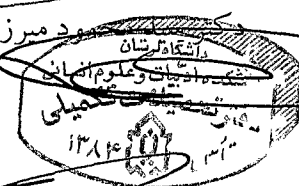 دکتر سید محمود میرز
دانشگاه لرستان
دانشکده ادبیات و علوم انسانی
تحصیلات تکمیلی
۱۳۸۴